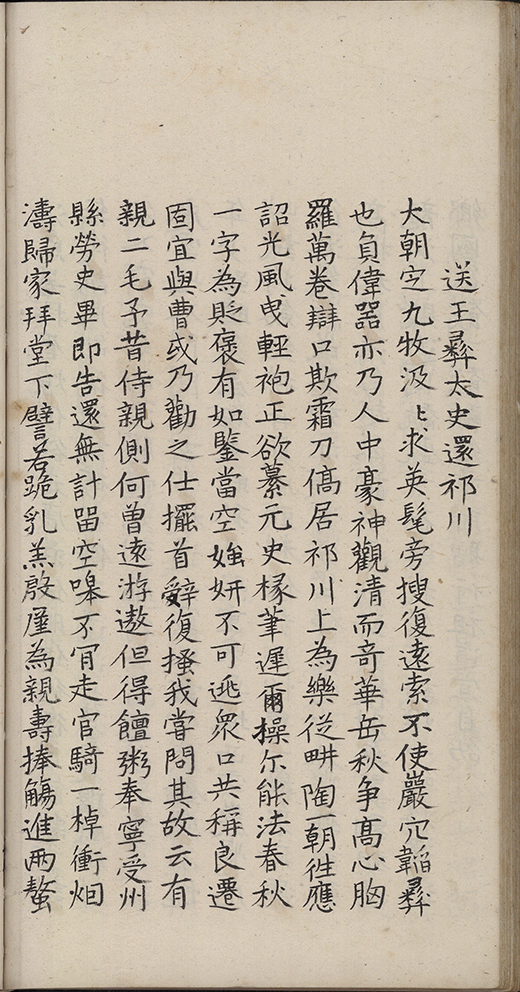 送王彝太史還祁川
大朝定九牧汲〻求英髦旁搜復遠索不使巖穴韜彝
也負偉器亦乃人中豪神觀清而竒華岳秋争髙心胸
羅萬卷辯口欺霜刀僑居祁川上為樂從畊陶一朝徃應
詔光風曵輕袍正欲纂元史椽筆遲爾操尓能法春秋
一字為貶褒有如鑒當空媸妍不可逃衆口共稱良遷
固宜與曹或乃勸之仕擺首辭復搔我嘗問其故云有
親二毛予昔侍親側何曾遠游遨但得饘粥奉寧受州
縣勞史畢即告還無計畱空嘷不肎走官騎一棹衝烟
濤歸家拜堂下譬若跪乳羔殷厪為親壽捧觴進兩螯